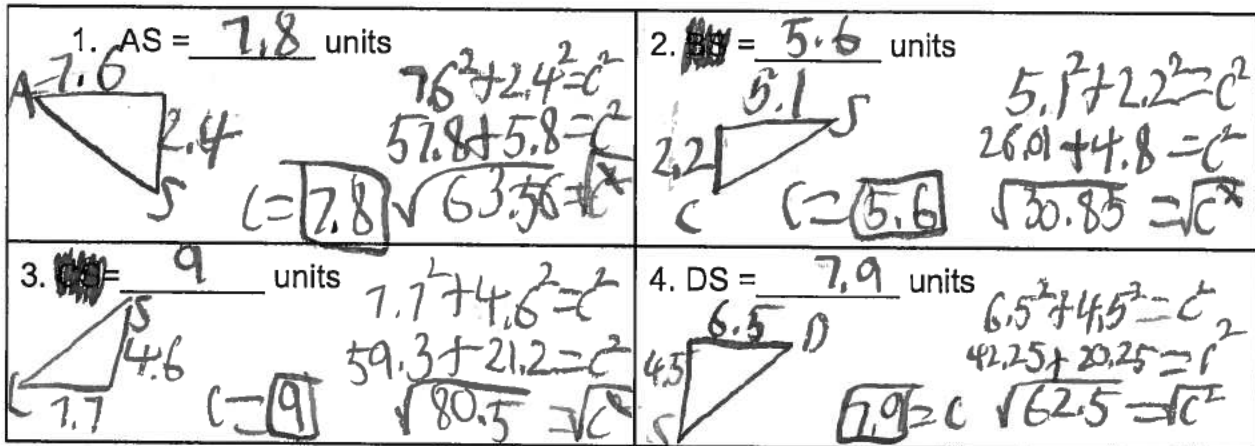 1. AS = 7.8 units
7.6
A
2.4
S
7.6²+2.4²=c²
57.8+5.8=c²
√63.56=√c²
c=7.8
2. = 5.6 units
5.1
S
2.2
C
5.1²+2.2²=c²
26.01+4.8=c²
√30.85=√c²
c=5.6
3. = 9 units
S
4.6
C
7.7
7.7²+4.6²=c²
59.3+21.2=c²
√80.5=√c²
c=9
4. DS = 7.9 units
6.5
D
4.5
S
6.5²+4.5²=c²
42.25+20.25=c²
√62.5=√c²
7.9=c